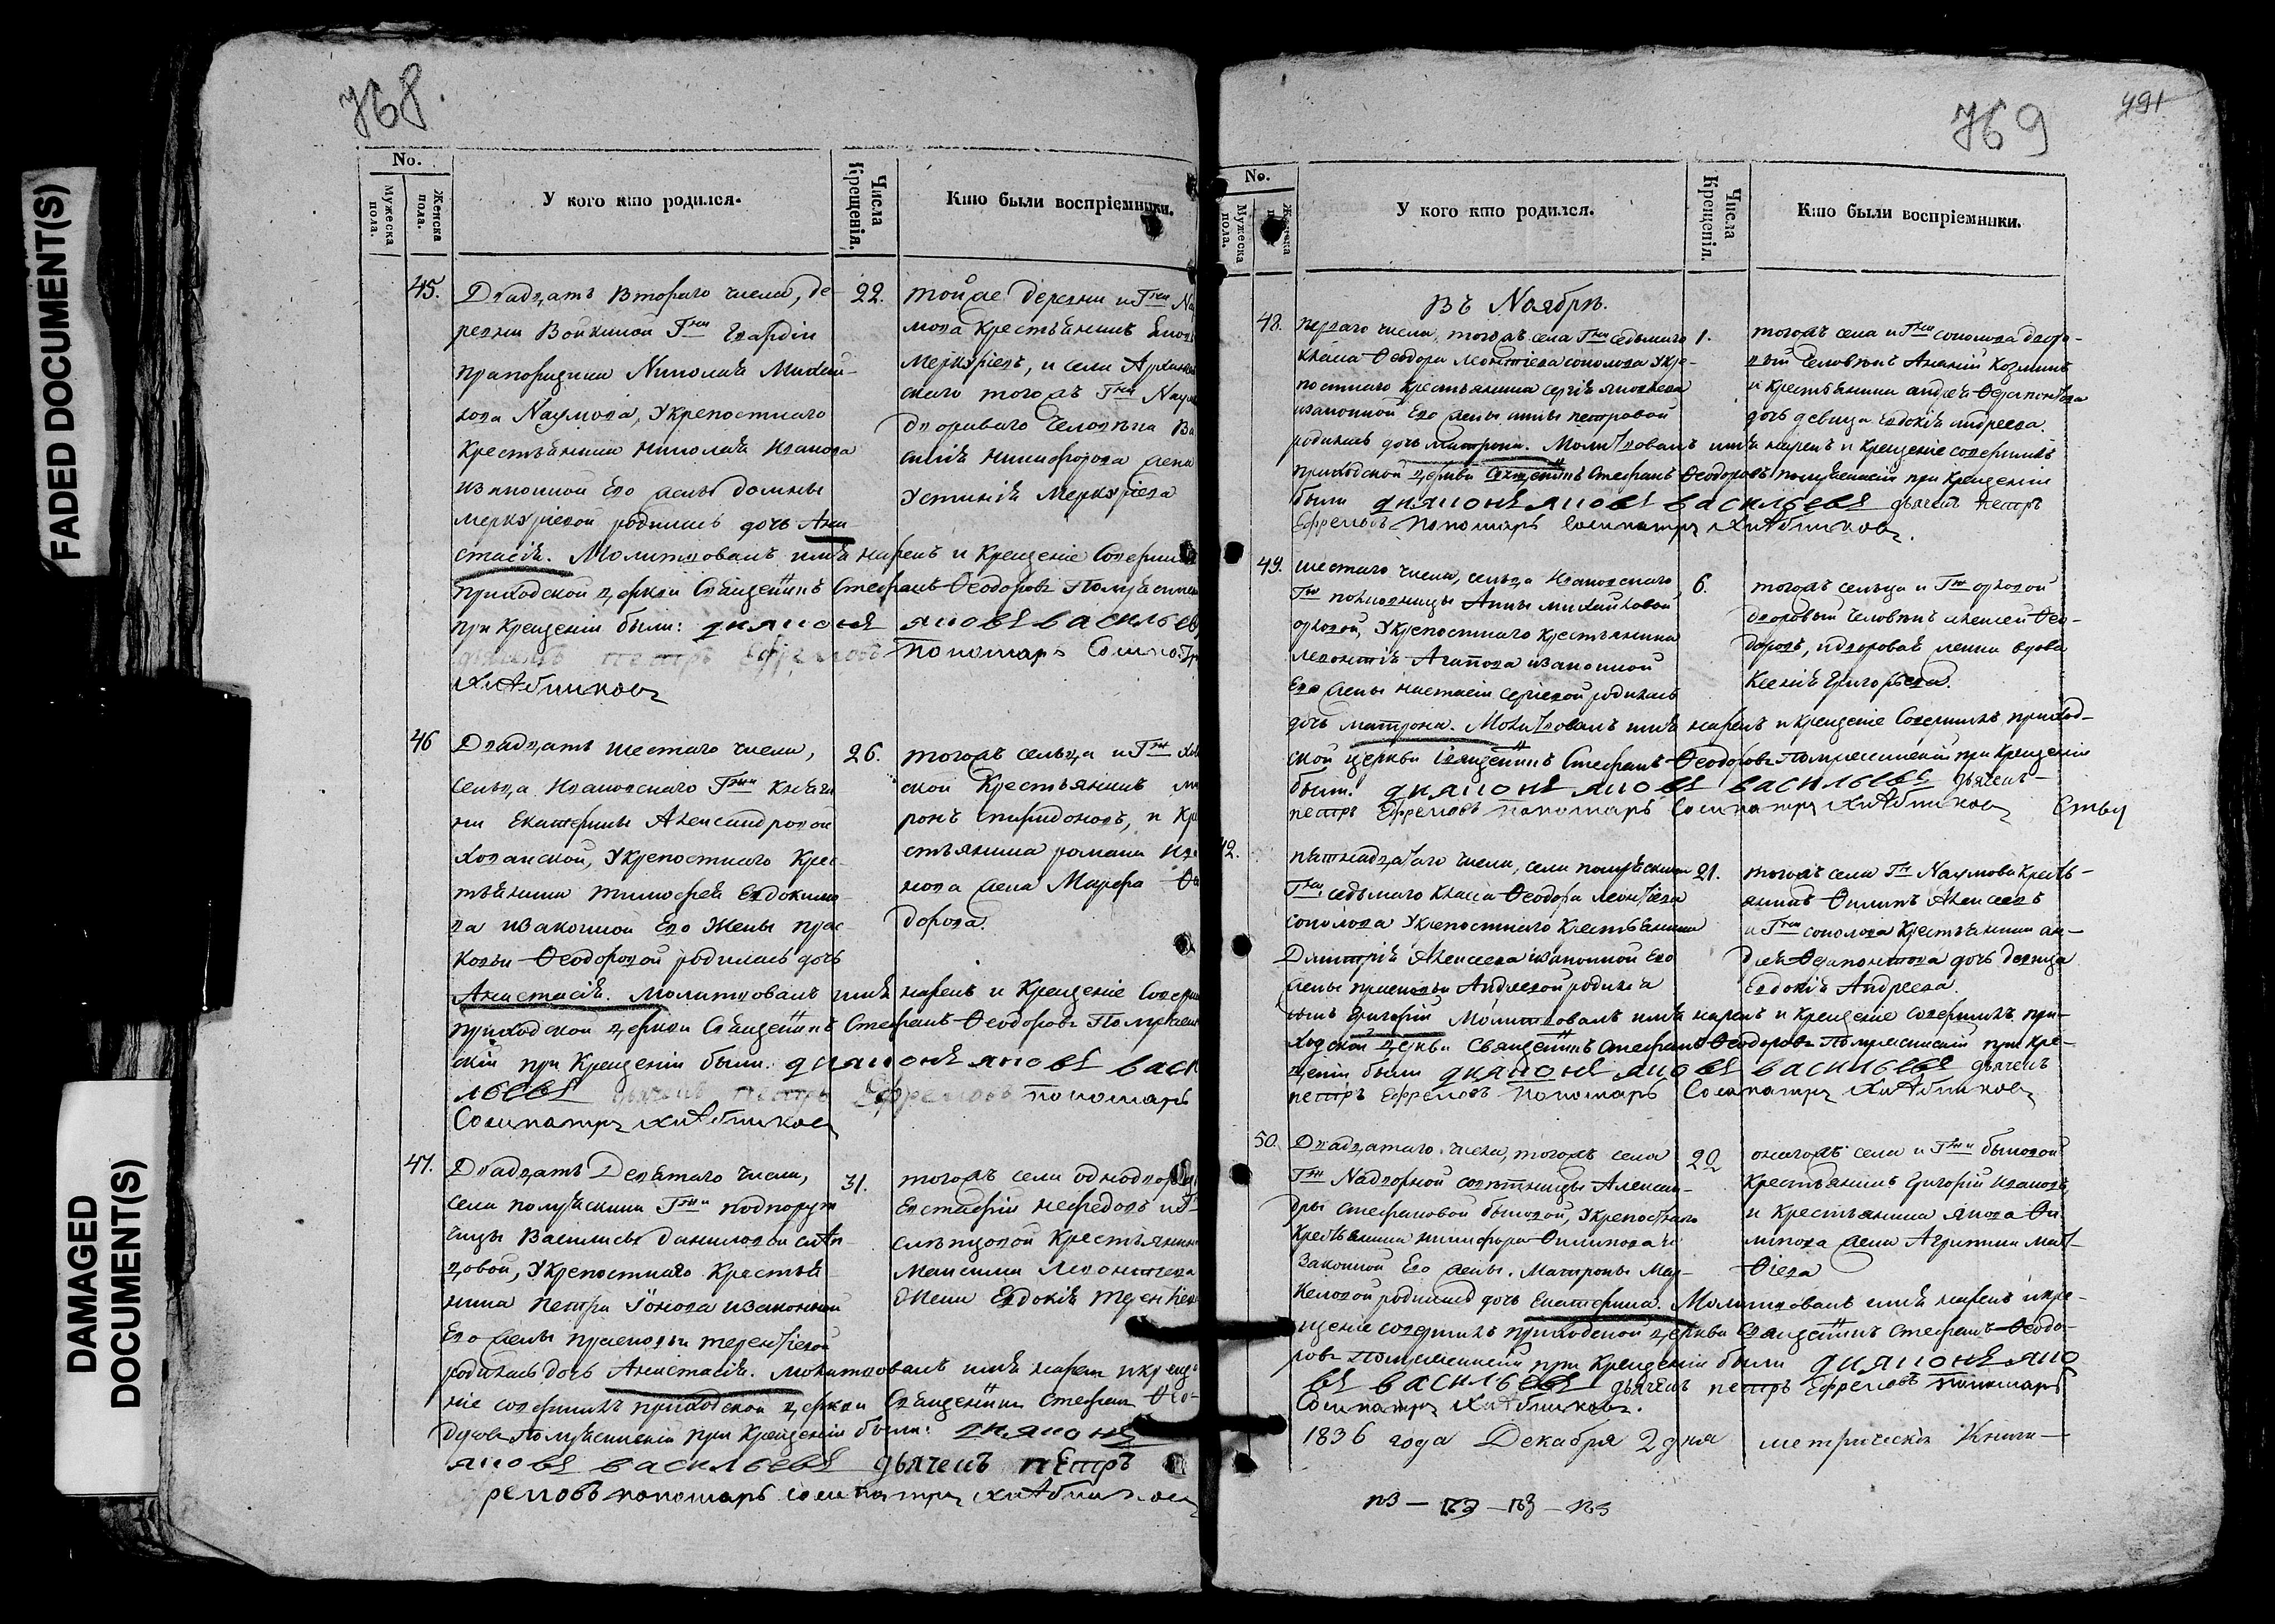 FADED DOCUMENT(S)
DAMAGED
DOCUMENT(S)
768.
No.
Мужеска пола.
Женска пола.
У кого кто родился.
Числа Крещенія.
Кто были воспріемники.
45.
Двадцать втораго числа, де-
ревни Войкиной Г-на Гвардіи
прапорщика Николая Михай-
лова Наумова, Укрепостнаго
Крестьянина Николая Иванова
изаконной Его жены Домны
меркуріевой родилась дочь Ана-
стасія. Молитвовалъ имя нарекъ и Крещеніе Соверши
приходской церкви Священникъ Стефанъ Ѳеодоровъ
при Крещеніи были: діяконъ яковъ васильев
дьячекъ петръ Ефремовъ пономарь
22.
тойже деревни и Г-на На
мова Крестьянинъ
Меркуріевъ, и села Арханге
скаго тогожъ Г-на Наум
двороваго человѣка Ва
силія Никифорова жена
Устинія Меркуріева
46
Двадцать шестаго числа,
сельца Ивановскаго Г-жи Княги
ни Екатерины Александровой
Хованской, Укрепостнаго Крес-
тьянина Тимофея Евдокимо-
ва изаконной Его Жены прас
ковьи Ѳеодоровой родилась дочь
Анастасія. Молитвовалъ имя нарекъ и Крещеніе Соверши
приходской церкви Священникъ Стефанъ Ѳеодоровъ
скій при Крещеніи были. діяконъ яковъ васи
льевъ дьячекъ петръ Ефремовъ пономарь
26.
тогожъ сельца и Г-жи Хов
ской Крестьянинъ ми
ронъ спиридоновъ, и Кре
стьянина романа Ива
нова жена Марфа Ѳе
дорова.
47.
Двадцать Девятаго числа,
села Г-жи подпоруч
чицы Василисы Даниловой
Укрепостнаго Крестья
нина петра Іонова изаконной
Его жены прасковьи терентіевой
родилась дочь Анастасія. молитвовалъ имя нарекъ икреще
ніе совершилъ приходской церкви Священникъ Стефанъ Ѳео-
доровъ при Крещеніи были: діяконъ
яковъ васильевъ дьячекъ петръ
ремовъ пономарь
31.
тогожъ села однодворец
Евстафій нефедовъ и Г
Крестьянина
Максима Леонтіева
Жена Евдокія терентіев
769
491
No.
Мужеска пола.
У кого кто родился.
Числа Крещенія.
Кто были воспріемники.
Въ Ноябрѣ.
48.
перваго числа, тогожъ села Г-на седьмаго
класса Ѳеодора Леонтіева соколова Укре-
постнаго Крестьянина сергія яковлева
изаконной Его жены анны петровой
родилась дочь матрона. Молитвовалъ имя нарекъ и крещеніе совершилъ
приходской церкви Священникъ Стефанъ Ѳеодоровъ при крещеніи
были діяконъ яковъ васильевъ дьячекъ петръ
Ефремовъ пономарь
1.
тогожъ села и Г-на соколова дворо-
вый человѣкъ Ананій Козминъ
и крестьянина андрея Ѳерапонтова
дочь девица Евдокія андреева.
49.
шестаго числа, сельца Ивановскаго
Г-жи полковницы Анны михайловой
орловой, Укрепостнаго крестьянина
леонтія Агапова изаконной
Его жены настасіи сергіевой родилась
дочь матрона. Молитвовалъ имя нарекъ и крещеніе Совершилъ приход-
ской церкви Священникъ Стефанъ Ѳеодоровъ при крещеніи
были: діяконъ яковъ васильевъ дьячекъ
петръ Ефремовъ пономарь
6.
тогожъ сельца и Г-жи орловой
дворовый человѣкъ алексей Ѳео-
доровъ, идворовая женка вдова
Ксенія Григорьева.
42.
пятнадцатаго числа, села
Г-на седьмаго класса Ѳеодора Леонтіева
соколова Укрепостнаго Крестьянина
Димитрія Алексеева изаконной Его
жены прасковьи Андреевой родился
сынъ григорій Молитвовалъ имя нарекъ и крещеніе совершилъ при-
ходской церкви Священникъ Стефанъ Ѳеодоровъ при кре-
щеніи были діяконъ яковъ васильевъ дьячекъ
петръ Ефремовъ пономарь
21.
тогожъ села Г-на Наумова Кресть-
янинъ Филипъ Алексеевъ
и Г-на соколова Крестьянина ан-
дрея Ѳерапонтова дочь девица
Евдокія Андреева.
50.
Двадцатаго числа, тогожъ села
Г-жи Надворной советницы Алексан-
дры стефановой быковой, Укрепостнаго
Крестьянина никифора Филипова и
Законной Его жены. Матроны Мар-
келовой родилась дочь Екатерина. Молитвовалъ имя нарекъ икре-
щеніе совершилъ приходской церкви Священникъ Стефанъ Ѳеодо-
ровъ при Крещеніи были діяконъ яко
въ васильевъ дьячекъ петръ Ефремовъ пономарь
20
оногожъ села и Г-жи быковой
Крестьянинъ Григорій ивановъ,
и Крестьянина якова Фи-
липова жена Агрипина Мат-
ѳіева
1836 года Декабря 2 дня метрическія Книги